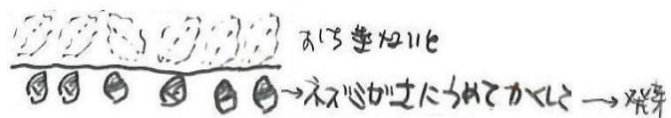 おち葉ないと
→ネズミが土にうめてかくして→発芽